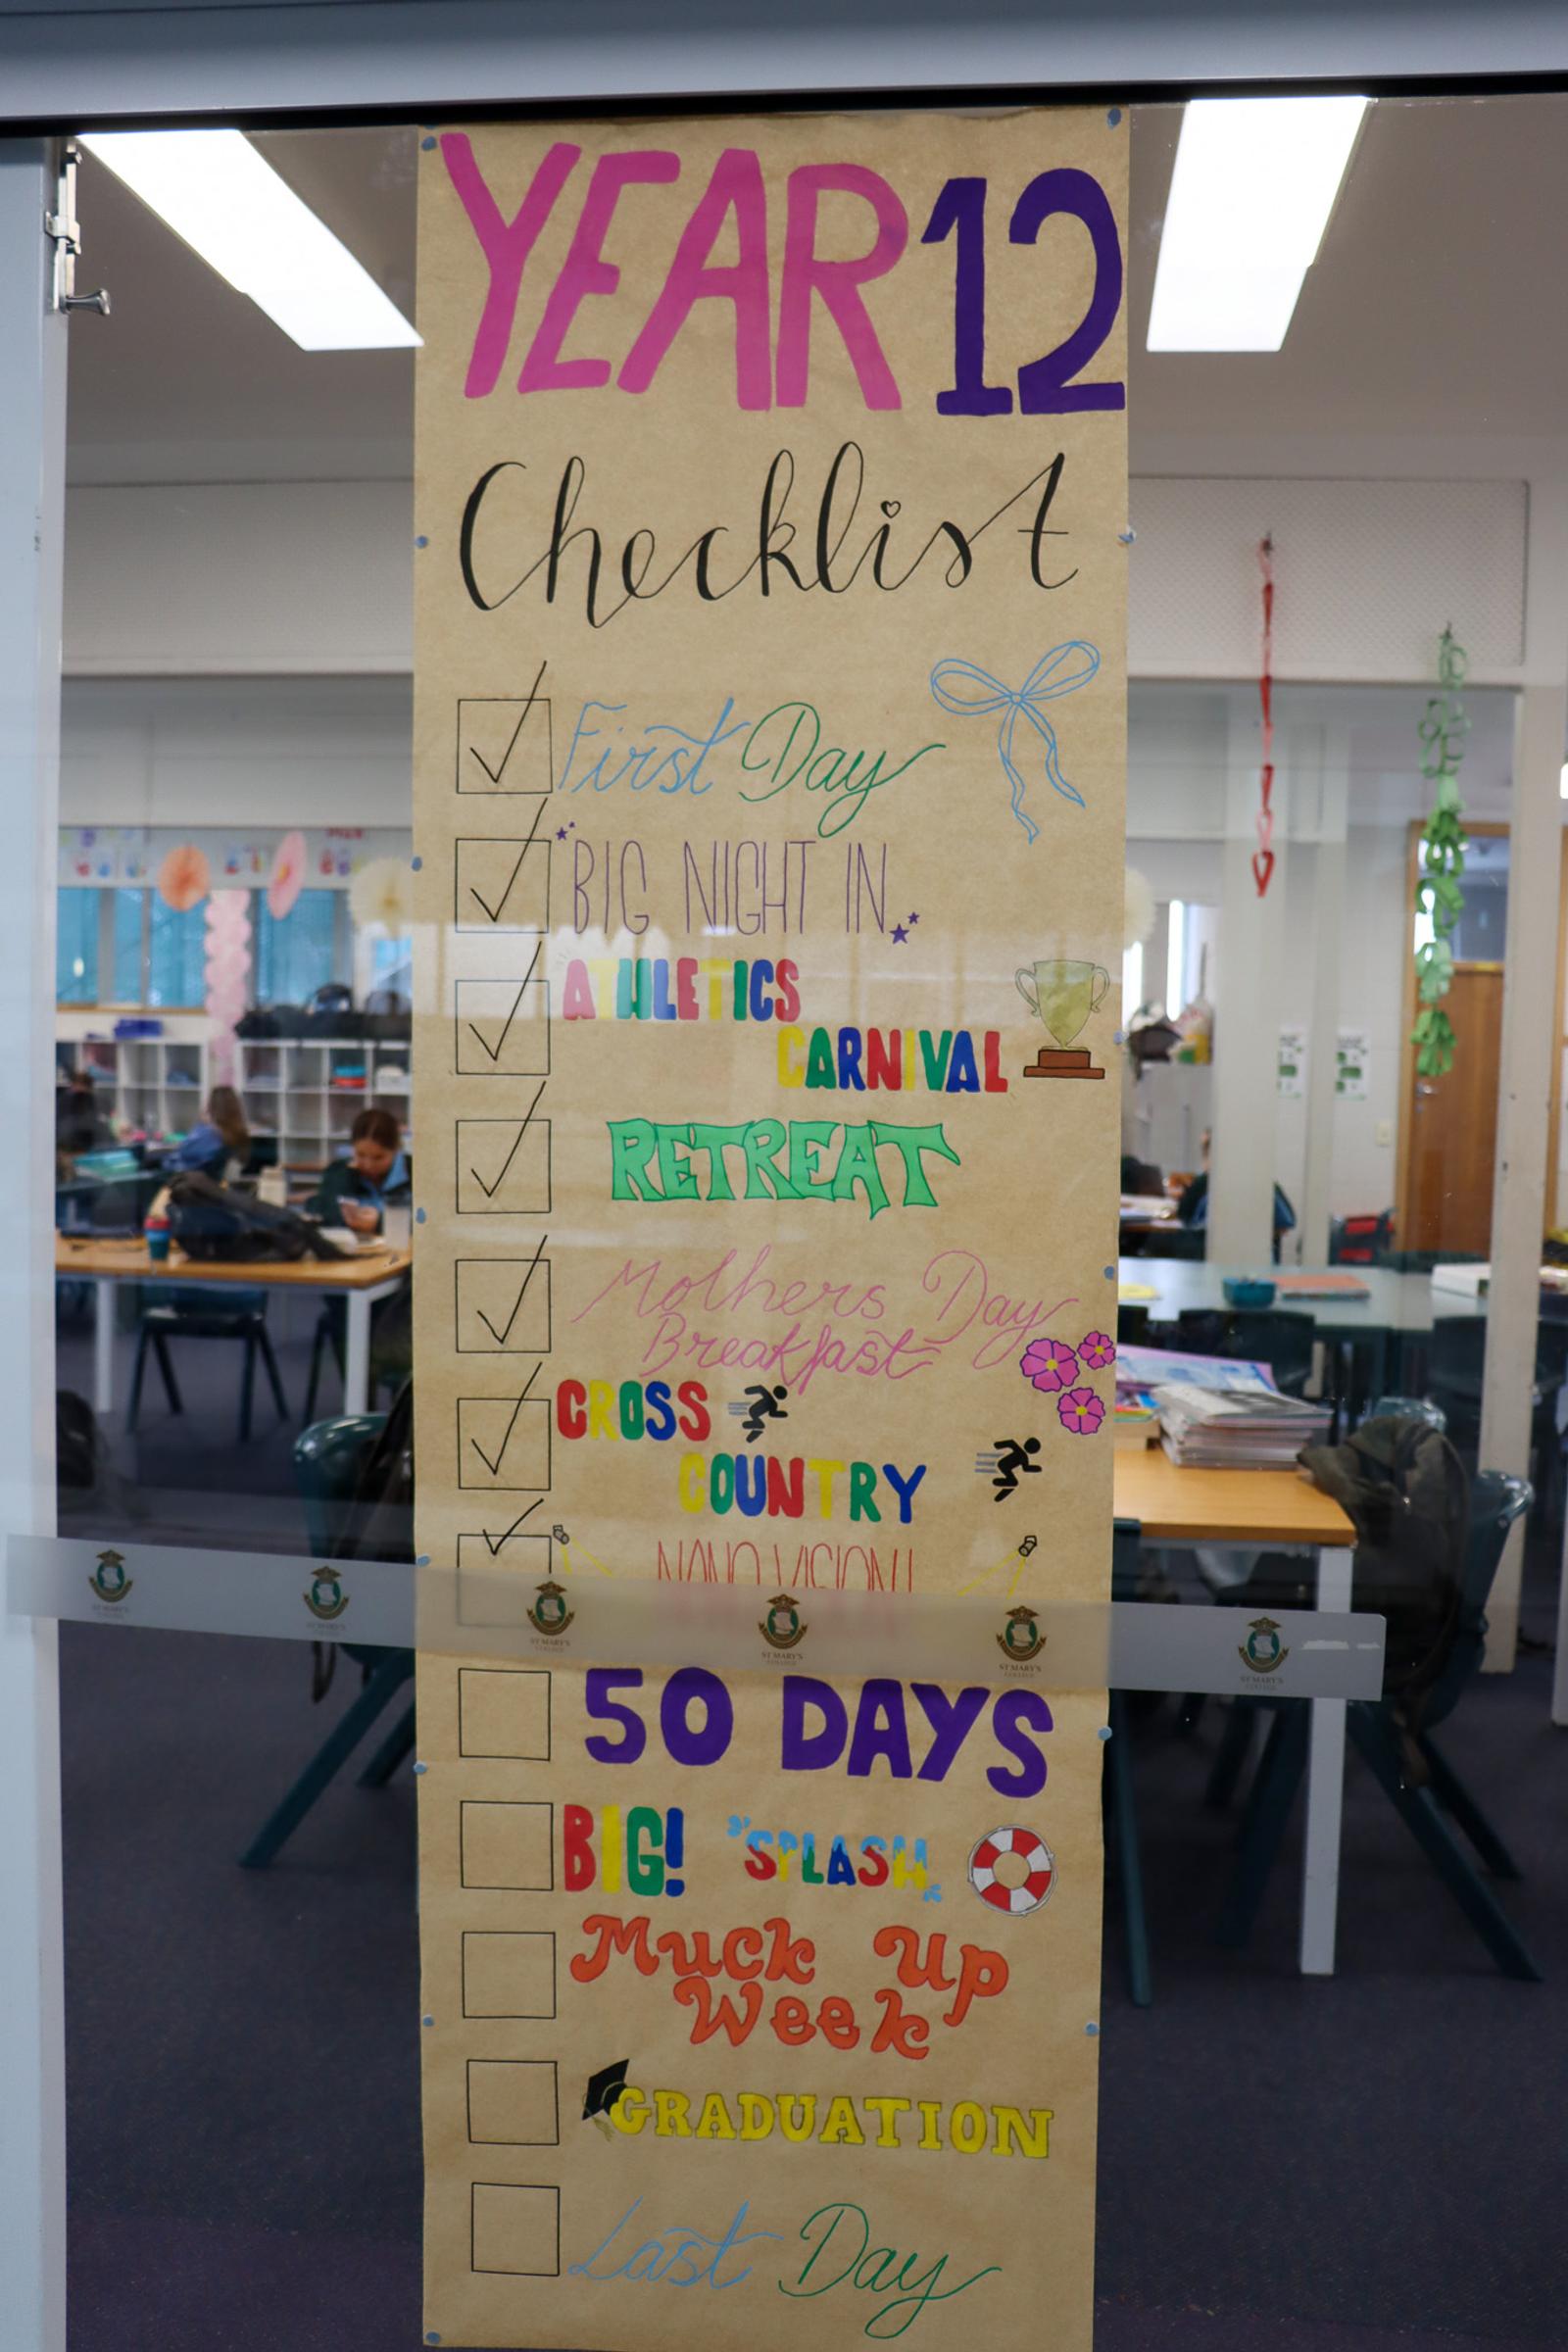 YEAR 12
Checklist
First Day
BIG NIGHT IN
ATHLETICS
CARNIVAL
RETREAT
Mothers Day
Breakfast
CROSS
COUNTRY
NANO VISION!
ST MARY'S
COLLEGE
ST MARY'S
COLLEGE
ST MARY'S
COLLEGE
ST MARY'S
COLLEGE
50 DAYS
BIG! SPLASH
Muck Up
Week
GRADUATION
Last Day